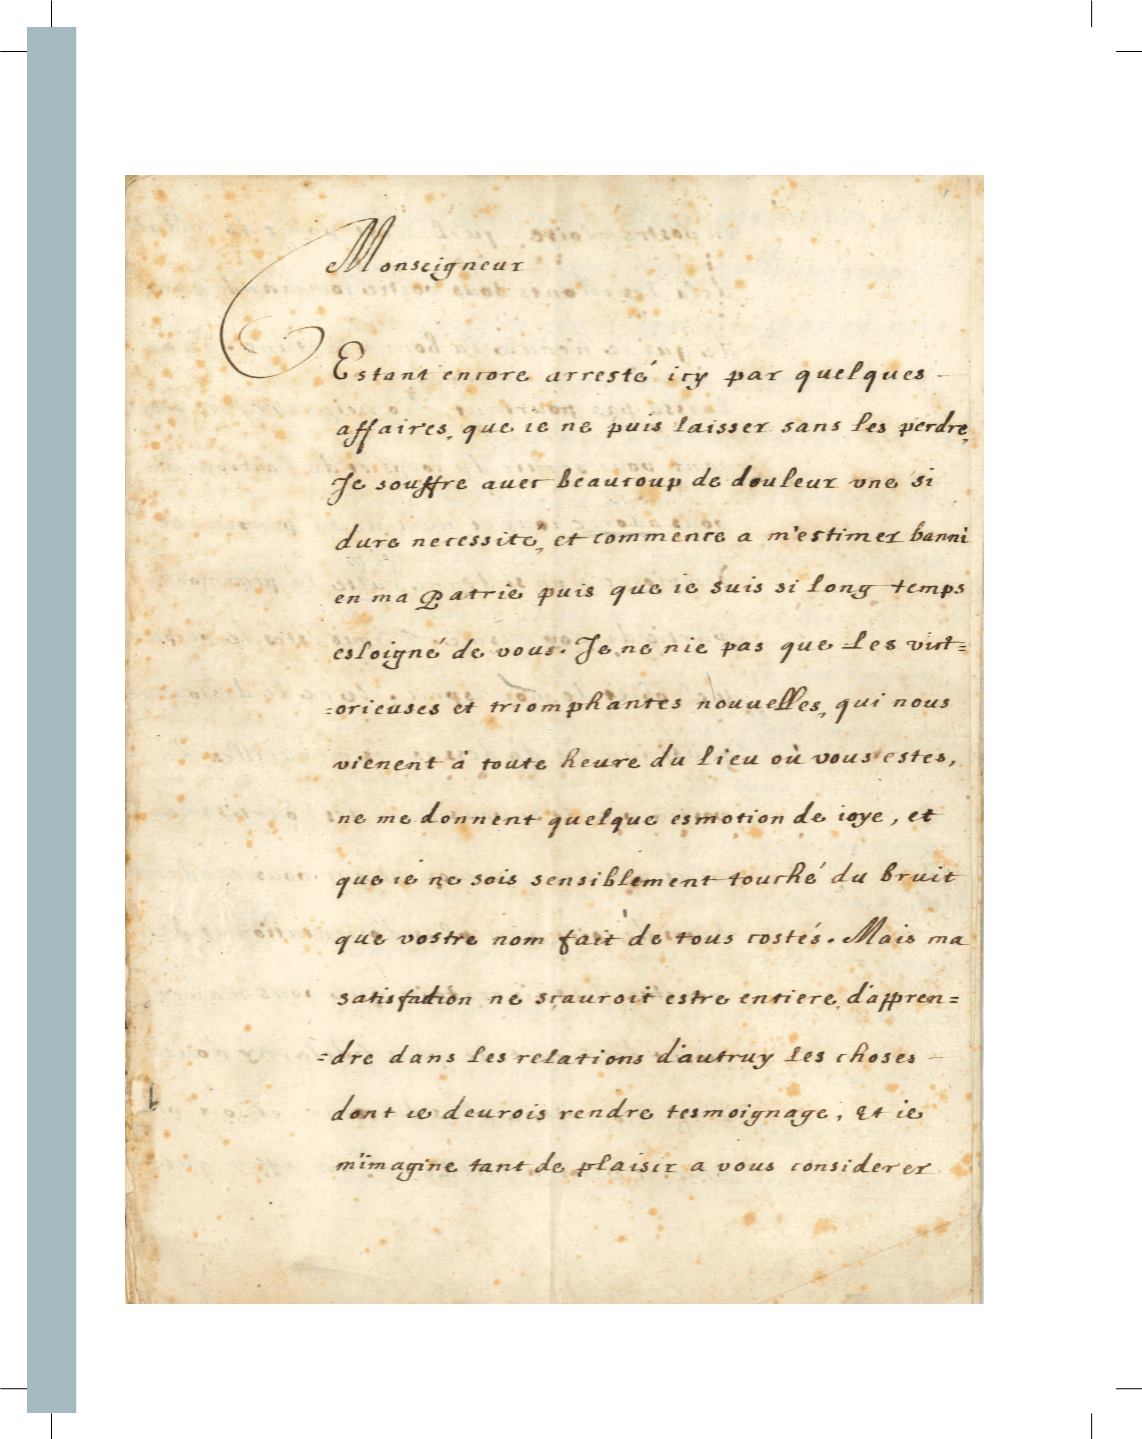 Monseigneur
Estant encore arresté icy par quelques
affaires, que ie ne puis laisser sans les perdre,
Je souffre auec beaucoup de douleur vne si
dure necessite, et commence a m'estimer banni
en ma Patrie puis que ie suis si long temps
esloigné de vous. Je ne nie pas que les vict=
=orieuses et triomphantes nouuelles, qui nous
vienent à toute heure du lieu où vous estes,
ne me donnent quelque esmotion de ioye, et
que ie ne sois sensiblement touché du bruit
que vostre nom fait de tous costés. Mais ma
satisfaction ne scauroit estre entiere, d'appren=
=dre dans les relations d'autruy les choses
dont ie deurois rendre tesmoignage, Et ie
m'imagine tant de plaisir a vous considerer